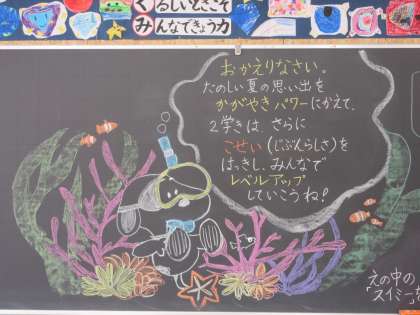 くるしいときこそ
みんなできょう力
おかえりなさい。
たのしい夏の思い出を
かがやきパワーにかえて、
2学きは、さらに
こせい(じぶんらしさ)を
はっきし、みんなで
レベルアップ
していこうね!
えの中の
「スイミー」